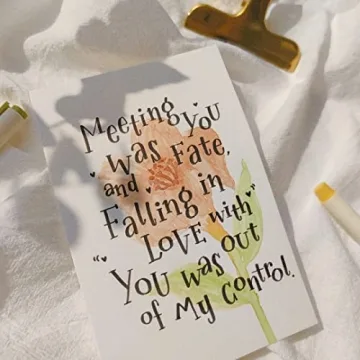 Meeting You
was Fate,
and
Falling in
Love with
You was out
of My Control.